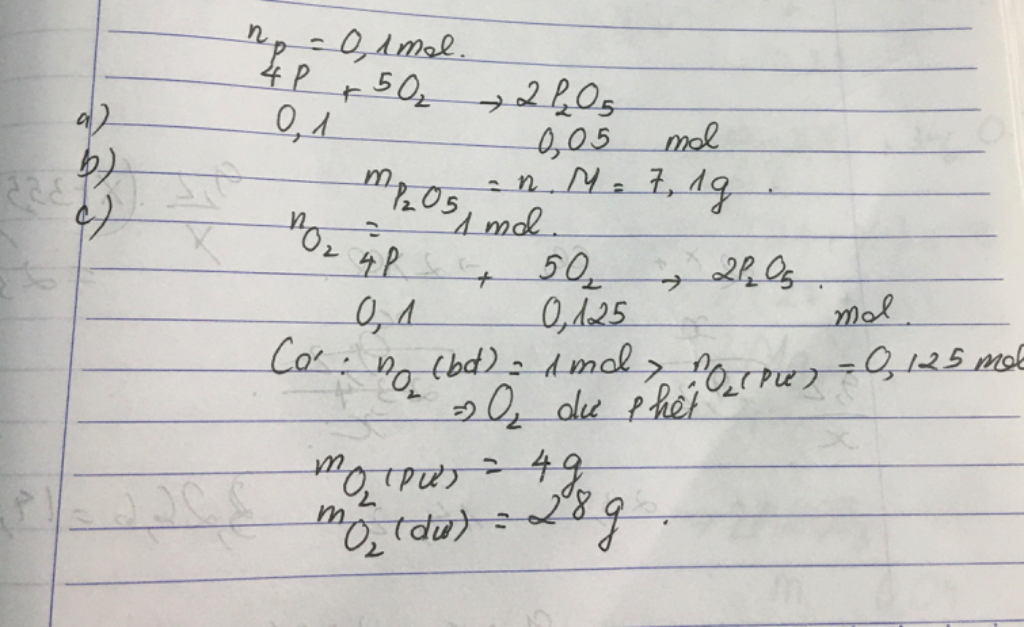 n_P = 0,1 mol.
4P + 5O₂ → 2P₂O₅
a) 0,1 0,05 mol
b) m_P₂O₅ = n. M = 7,1g.
c) n_O₂ = 1 mol.
4P + 5O₂ → 2P₂O₅.
0,1 0,125 mol.
Có: n_O₂ (bđ) = 1 mol > n_O₂ (pứ) = 0,125 mol
⇒ O₂ dư P hết
m_O₂ (pứ) = 4g
m_O₂ (dư) = 28g.